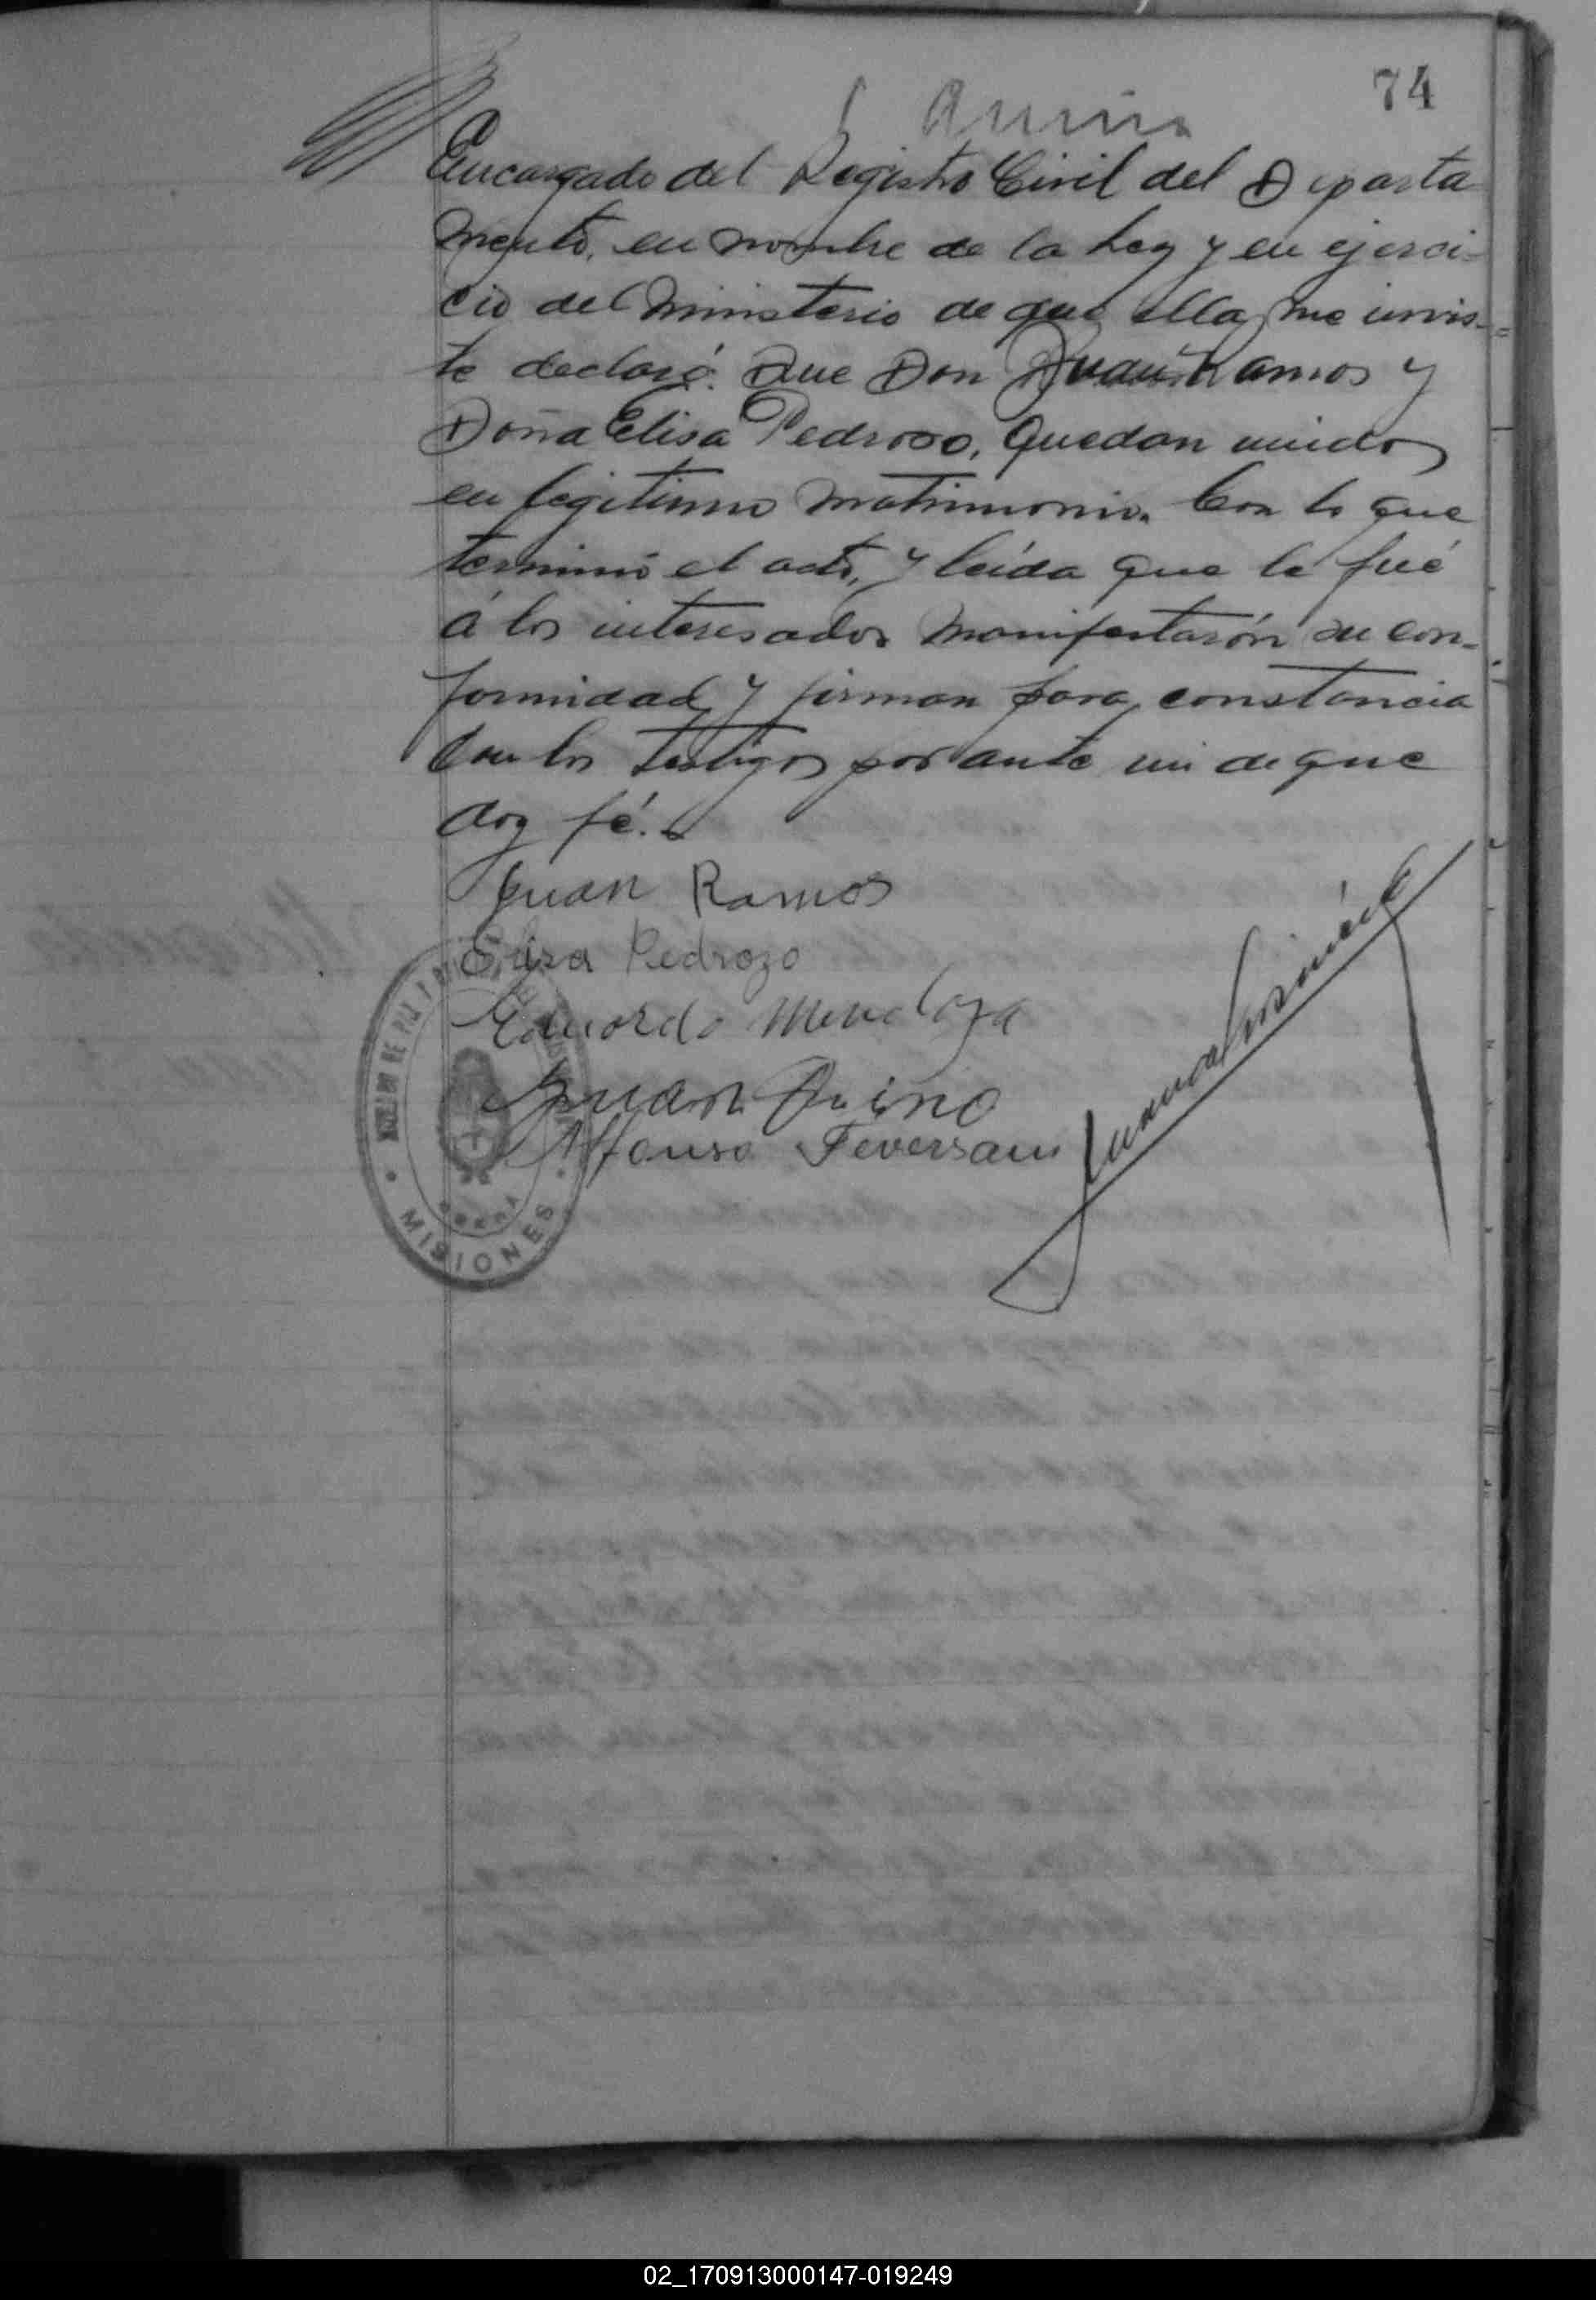 74
Encargado del Registro Civil del Departa
mento, en nombre de la Ley y en ejerci-
cio del Ministerio de que ella me invis-
te declaró: Que Don Juan Ramos y
Doña Elisa Pedroso, quedan unidos
en legitimo matrimonio. Con lo que
terminó el acto, y leída que le fué
á los interesados manifestarón su con-
formidad y firman para constancia
con los testigos por ante mi de que
doy fé.
Juan Ramos
Elisa Pedrozo
Eduardo Mendoza
Juan
Alfonso Feversani
JUZGADO DE PAZ Y
OBERA
MISIONES
02_170913000147-019249